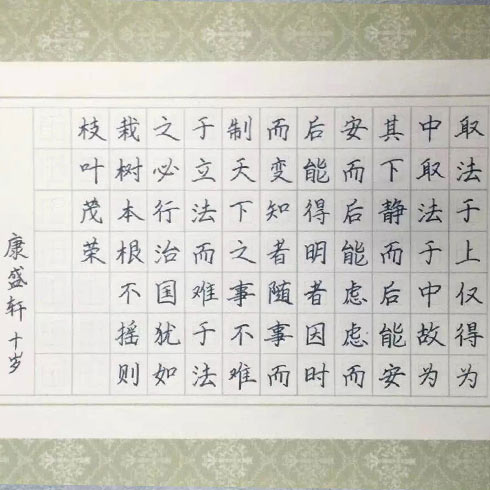 取法于上仅得为
中取法于中故为
其下静而后能安
安而后能虑虑而
后能得明者因时
而变知者随事而
制天下之事不难
于立法而难于法
之必行治国犹如
栽树本根不摇则
枝叶茂荣
康盛轩 十岁